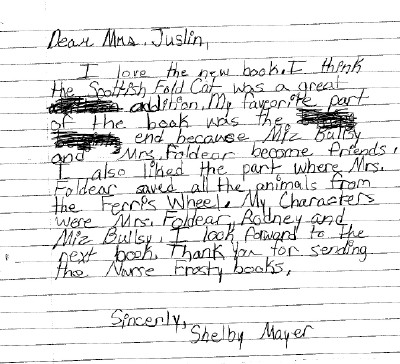 Dear Mrs. Juslin,
I love the new book. I think
the Scottish Fold Cat was a great
addition. My favorite part
of the book was the
end because Miz Bullsy
and Mrs. Foldear become friends.
I also liked the part where Mrs.
Foldear saved all the animals from
the Ferris Wheel. My Characters
were Mrs. Foldear, Rodney and
Miz Bullsy. I look forward to the
next book. Thank you for sending
the Nurse Frosty books.
Sincerly,
Shelby Mayer